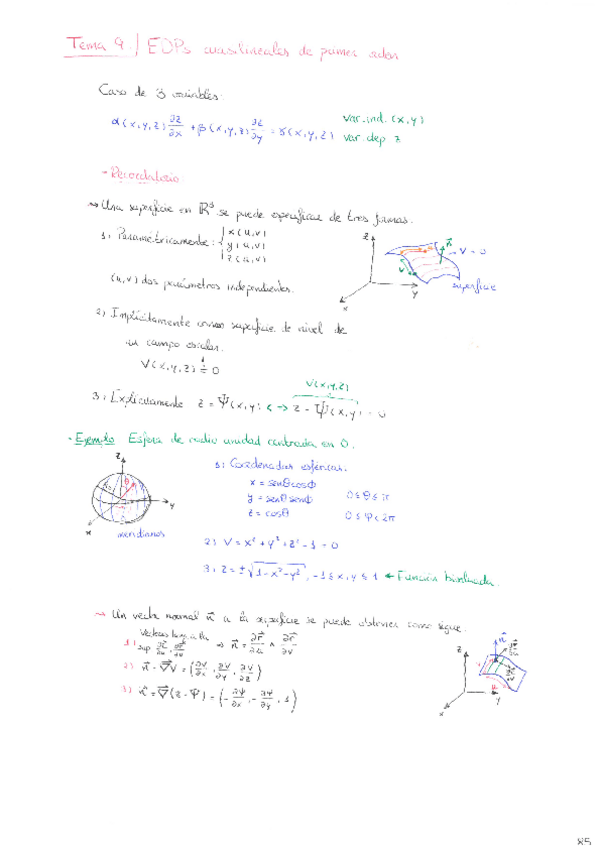 Tema 9. / EDPs cuasilineales de primer orden
Caso de 3 variables:
α(x,y,z) ∂z/∂x + β(x,y,z) ∂z/∂y = γ(x,y,z)
var. ind. (x,y)
var. dep z
- Recordatorio
Una superficie en ℝ³ se puede especificar de tres formas.
1) Paramétricamente: { x(u,v)
y(u,v)
z(u,v)
(u,v) dos parámetros independientes.
z
n
V = 0
superficie
y
x
2) Implícitamente como superficie de nivel de
un campo escalar.
V(x,y,z) = 0
V(x,y,z)
3) Explícitamente z = Ψ(x,y) ↔ z - Ψ(x,y) = 0
- Ejemplo Esfera de radio unidad centrada en O.
z
y
x
meridianos
1) Coordenadas esféricas.
x = senθcosφ
y = senθsenφ
z = cosθ
0 ≤ θ ≤ π
0 ≤ φ < 2π
2) V = x² + y² + z² - 1 = 0
3) z = ±√(1-x²-y²), -1 ≤ x,y ≤ 1 ← Función bivaluada.
→ Un vector normal n⃗ a la superficie se puede obtener como sigue.
1) Vectores tang. a la
sup ∂r⃗/∂u, ∂r⃗/∂v ⇒ n⃗ = ∂r⃗/∂u ∧ ∂r⃗/∂v
2) n⃗ = ∇⃗V = (∂V/∂x, ∂V/∂y, ∂V/∂z)
3) n⃗ = ∇⃗(z - Ψ) = (-∂Ψ/∂x, -∂Ψ/∂y, 1)
z
n
y
x
85